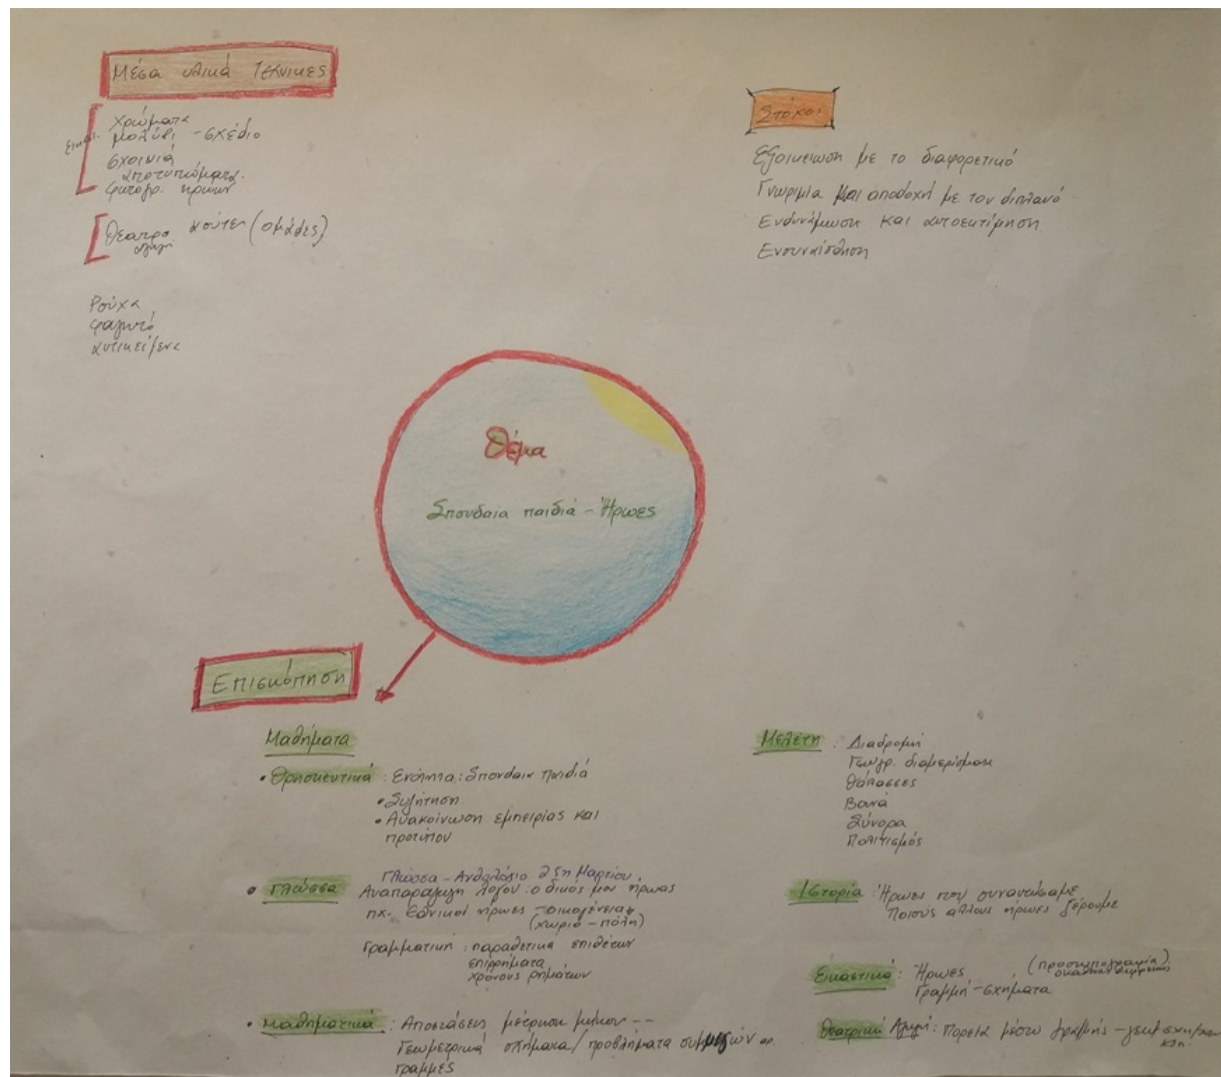 Μέσα υλικά Τεχνικές
Χρώματα
μολύβι - σχέδιο
σχοινιά
αποτυπώματα.
φωτογρ. ηρώων
Θέατρο κούκλα (ομάδες)
Ρούχα
φαγητό
αντικείμενα
Στόχοι
Εξοικείωση με το διαφορετικό
Γνωριμία και αποδοχή με τον διπλανό
Ενδυνάμωση και αυτοεκτίμηση
Ενσυναίσθηση
Θέμα
Σπουδαία παιδιά - Ήρωες
Επισκόπηση
Μαθήματα
• Θρησκευτικά : Ενότητα: Σπουδαία παιδιά
• Συζήτηση
• Ανακοίνωση εμπειρίας και
προτύπου
Γλώσσα - Ανθολόγιο 25η Μαρτίου
• Γλώσσα Αναπαραγωγή λόγου: ο δικός μου ήρωας
πχ. Εθνικοί ήρωες - οικογένεια
(χωριό - πόλη)
Γραμματική : παραθετικά επιθέτων
επιρρήματα
χρόνους ρημάτων
• Μαθηματικά : Αποστάσεις μέτρηση μήκους --
Γεωμετρικά σχήματα / προβλήματα συμμιγών αρ.
γραμμές
Μελέτη : Διαδρομή
Γεωγρ. διαμερίσματα
Θάλασσες
Βουνά
Σύνορα
Πολιτισμός
Ιστορία : Ήρωες που συναντήσαμε
Ποιούς άλλους ήρωες ξέρουμε
Εικαστικά : Ήρωες (προσωπογραφία)
Γραμμή - σχήματα
Θεατρική Αγωγή : Πορεία μέσω γραμμής - γεωμ σχημάτων
κλπ.